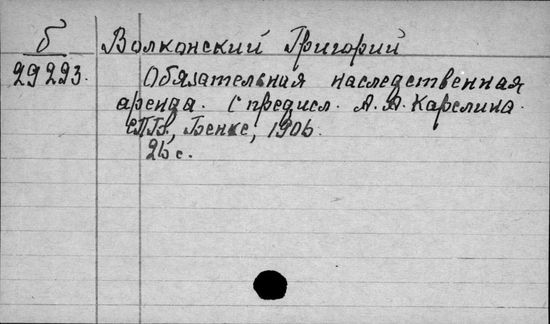 б Волконский Григорий
29293. Обязательная наследственная
аренда. С предисл. А. А. Карелина.
СПБ, Бенке, 1906.
26 с.